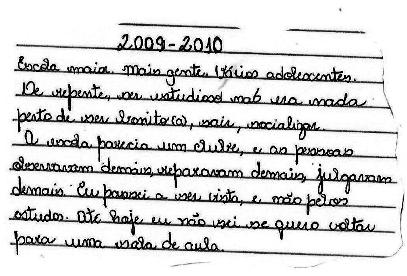 2009-2010
Escola maior. Mais gente. Vários adolescentes.
De repente, ser estudioso não era nada
perto de ser bonito(a), sair, socializar.
A escola parecia um clube, e as pessoas
observavam demais, reparavam demais, julgavam
demais. Eu passei a ser vista, e não pelos
estudos. Até hoje eu não sei se quero voltar
para uma sala de aula.